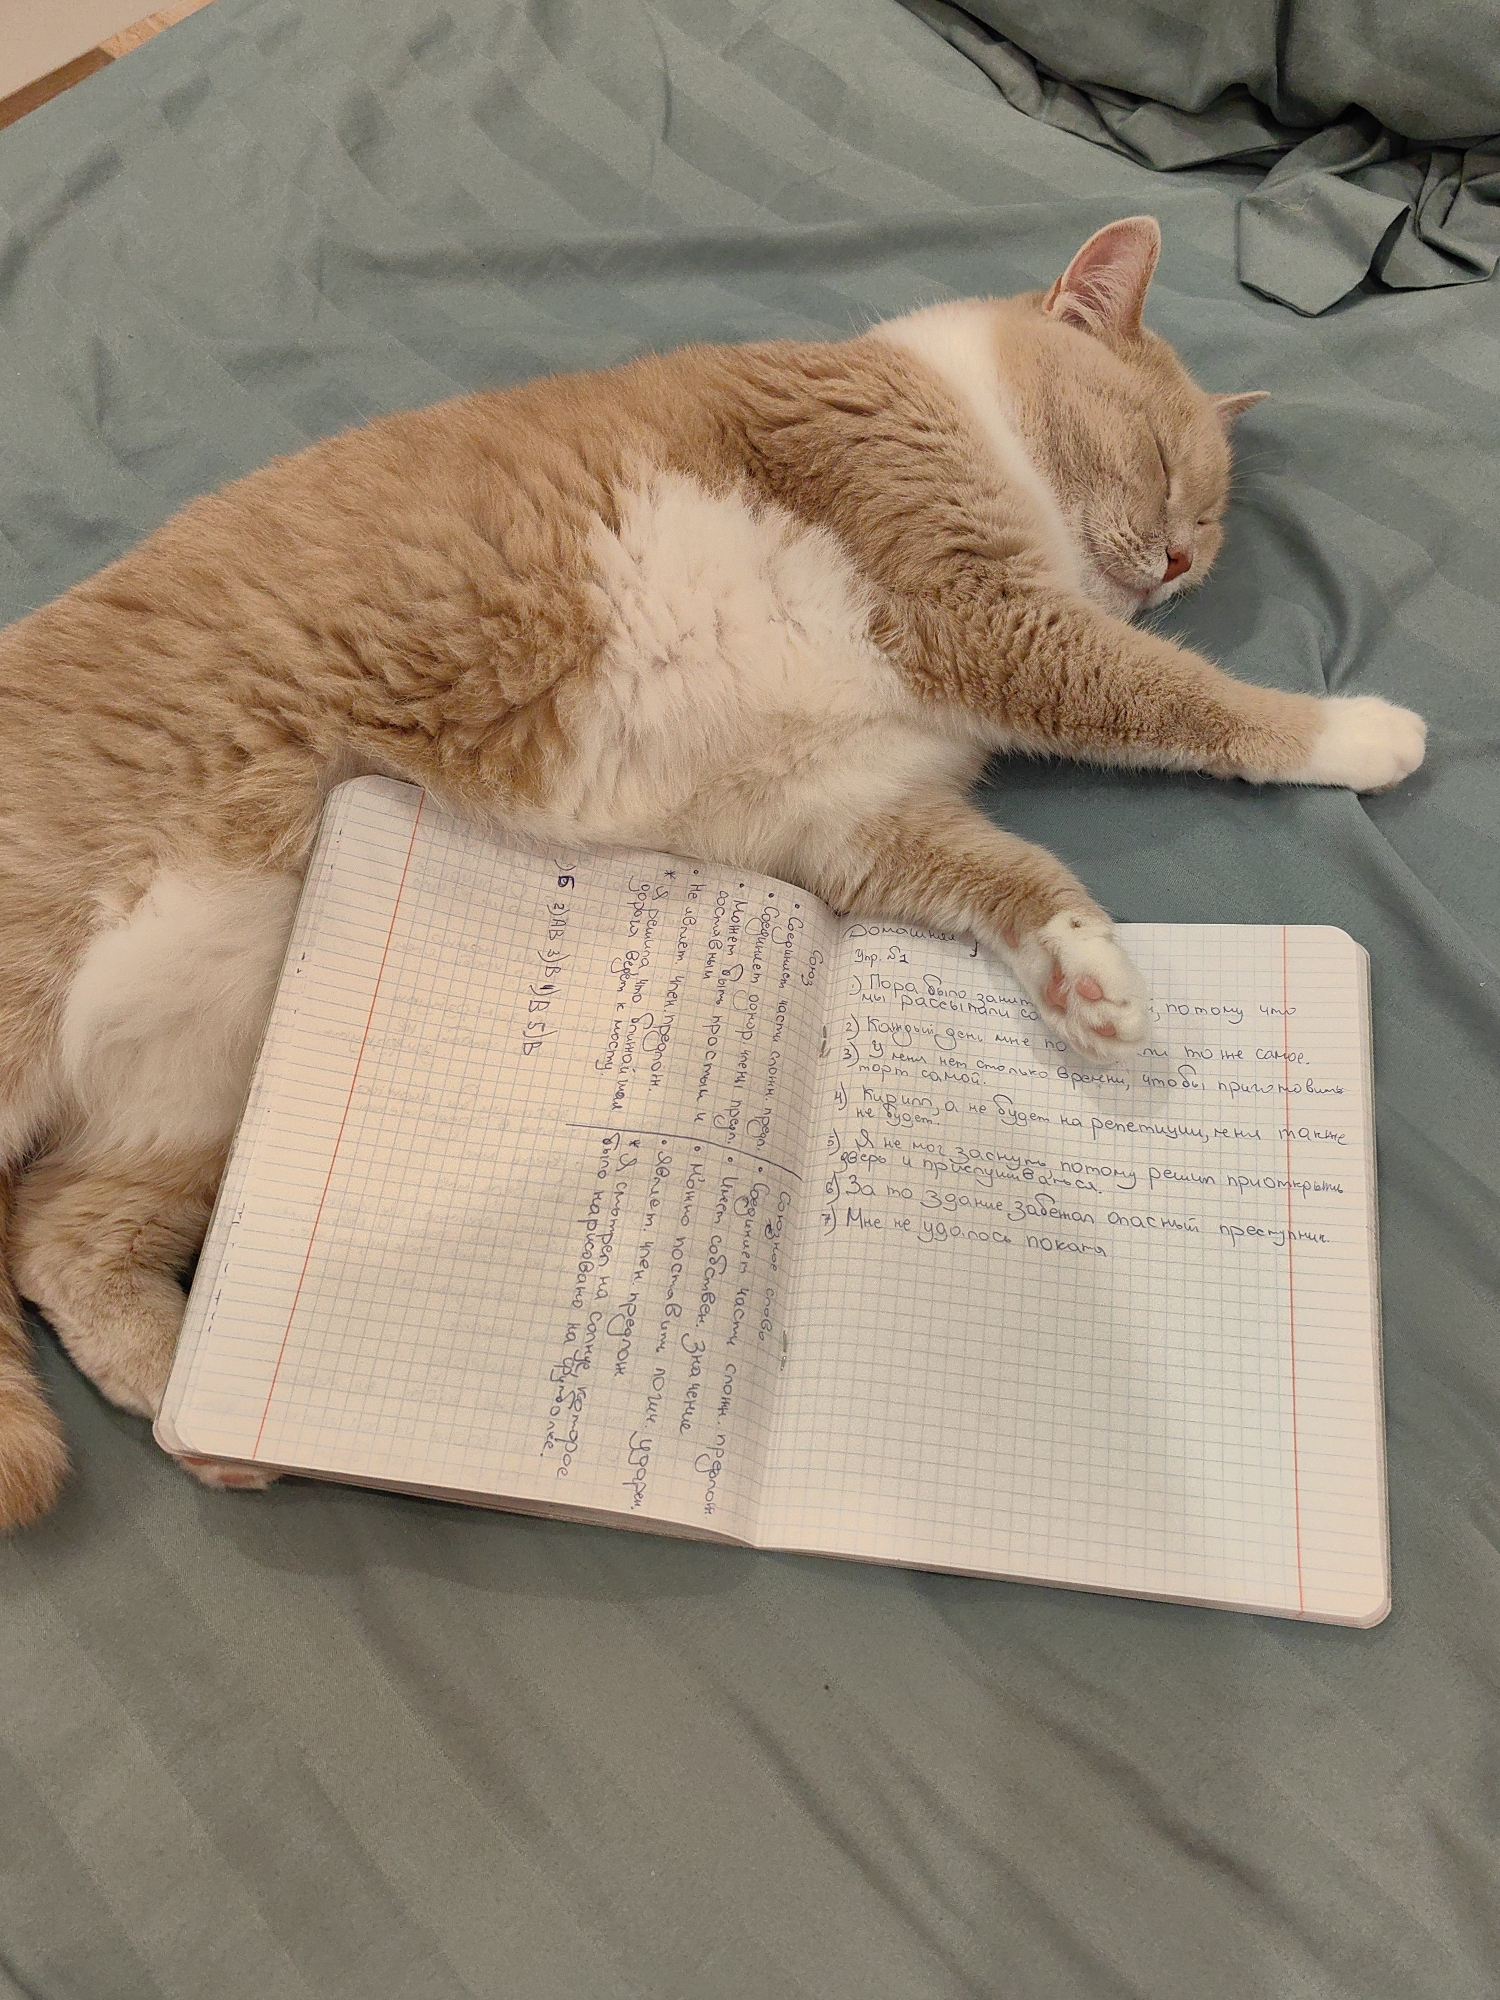 Союз
• Соединяет части сложн. предл.
• Соединяет однор. члены предл.
• Может быть простым и
составным
• Не явлет. член. предлож.
* Я решила, что длинной шла
дорога ведёт к мосту.
Союзное слово
• Соединяет части сложн. предлож.
• Имеет собствен. значение
• Можно поставить логич. ударен.
• Явлет. член. предлож
* Я смотрел на солнце, которое
было нарисовано на футболке.
1) Б 2) АВ 3) В 4) В 5) В
Домашняя
Упр. №1
1) Пора было занит потому что
мы рассыпали со
2) Каждый день мне по ли то же самое.
3) У меня нет столько времени, чтобы приготовить
торт самой.
4) Кирилл, а не будет на репетиции, меня также
не будет.
5) Я не мог заснуть, потому решил приоткрыть
дверь и прислушиваться.
6) За то здание забежал опасный преступник.
7) Мне не удалось покатя